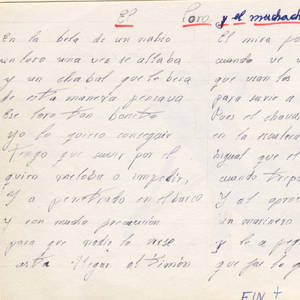 El Loro y el muchach
En la bela de un nabio
un loro una vez se allaba
y un chabal que lo beia
de esta manera pensava
Ese loro tan bonito
yo lo quiero conseguir
Tengo que suvir por el
quiero vueloba o impedir,
Y a penetrado en el barco
y con mucha precaucion
para que nadie lo viese
asta llegar al timón
El mira por
cuando ve u
que usan los
para suvir a
Pues el chava
en la escalera
higual que el
cuando trepa
Y al apro
un marinero
y le a peg
que fue lo q
FIN +